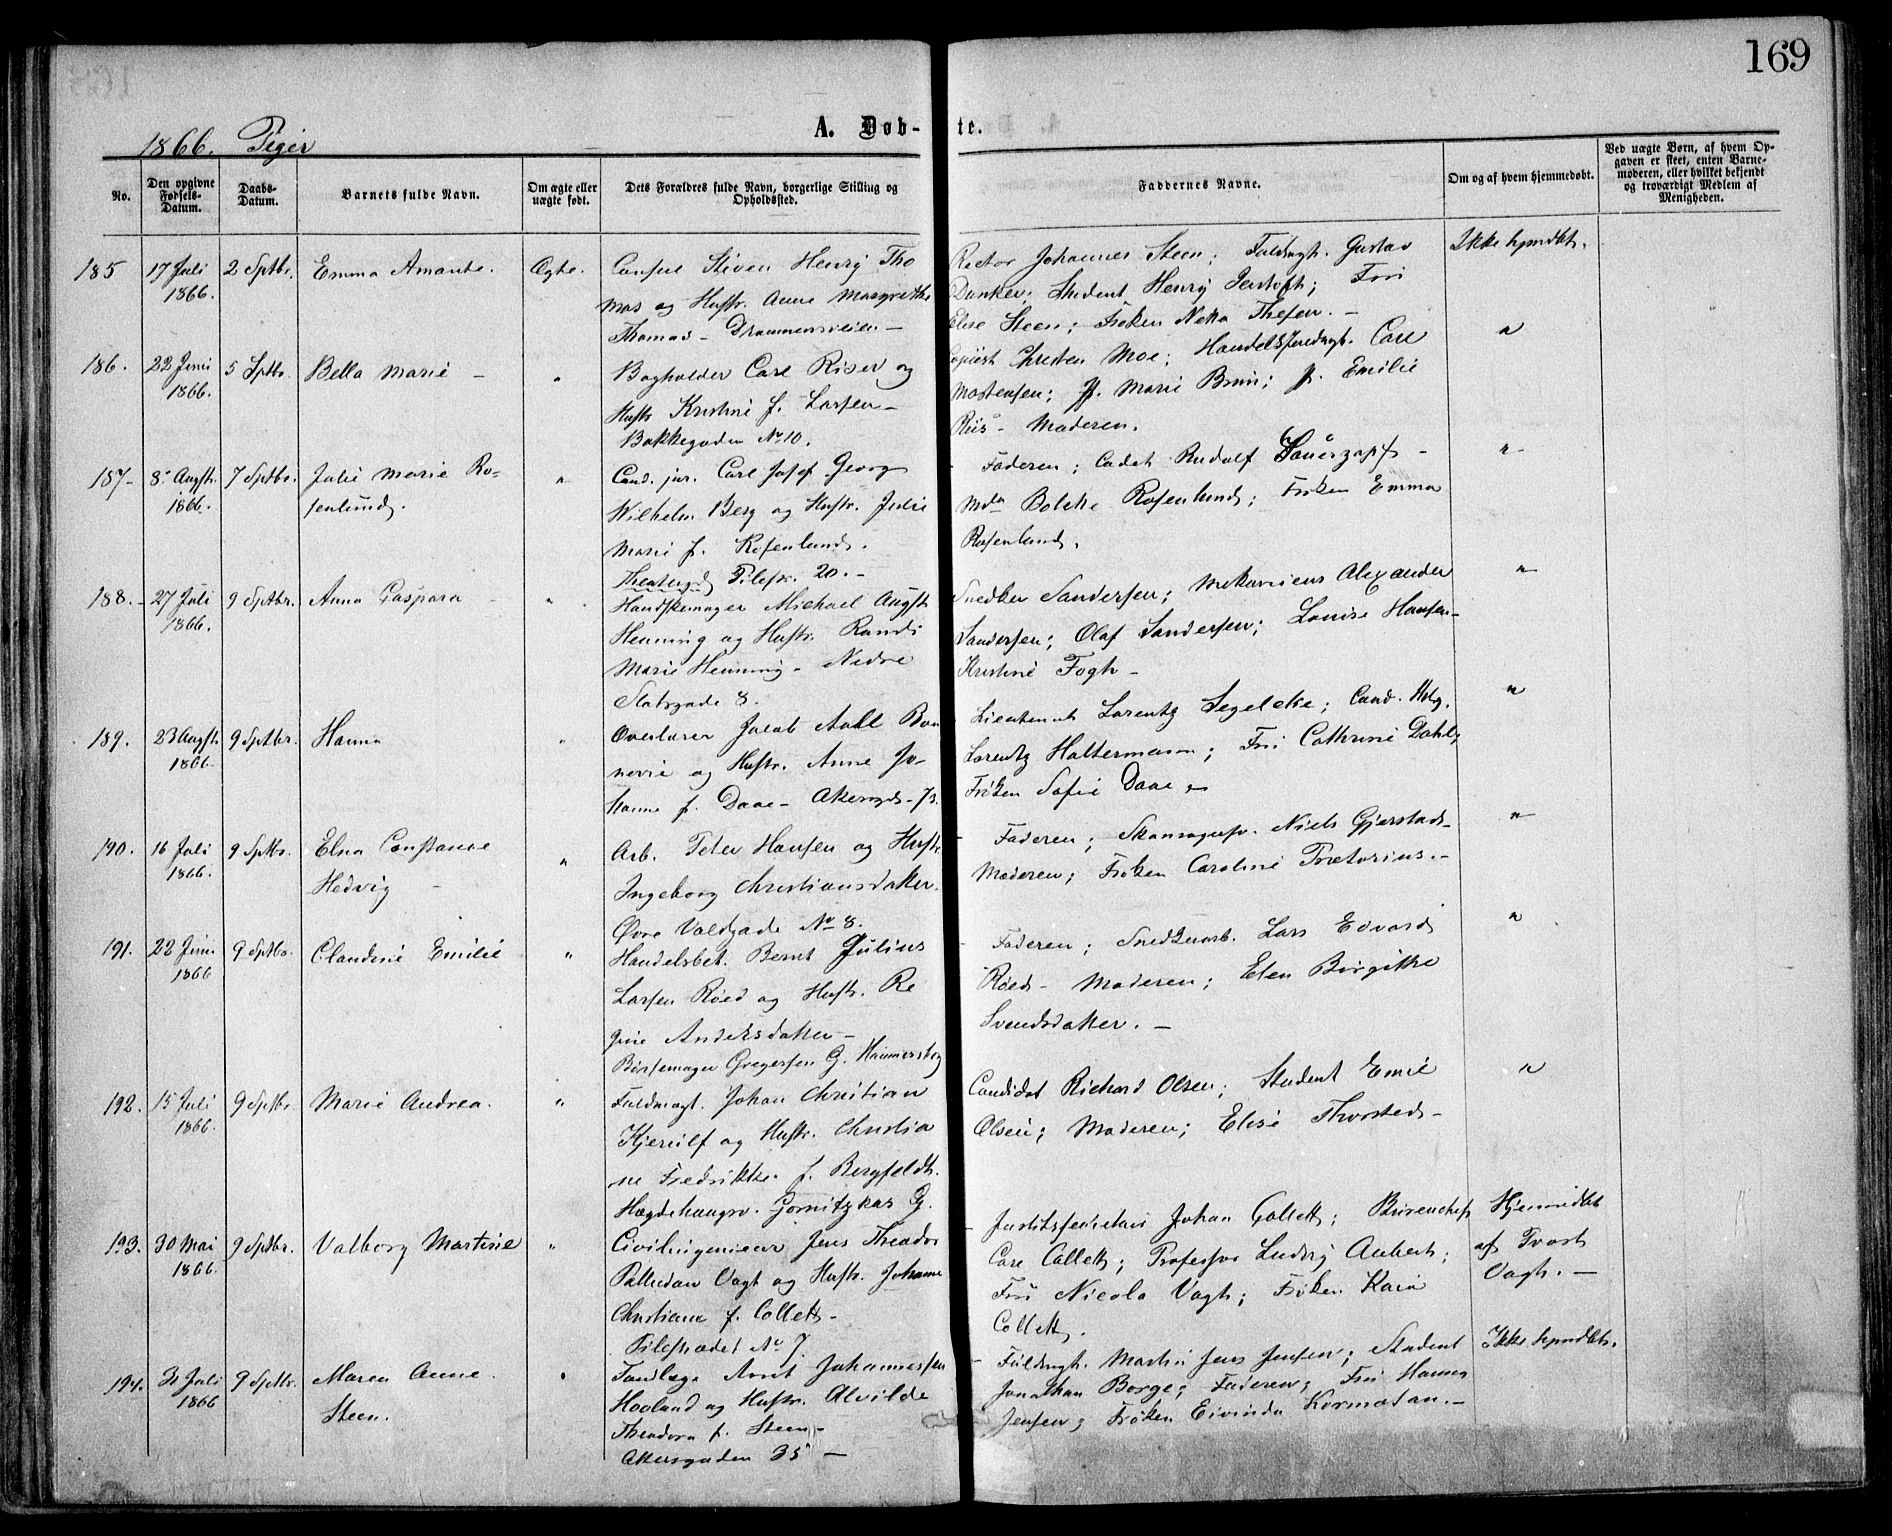 169
A. Døb-
te.
1866. Piger
No.
Den opgivne
Fødsels-
Datum.
Daabs-
Datum.
Barnets fulde Navn.
Om ægte eller
uægte født.
Dets Forældres fulde Navn, borgerlige Stilling og
Opholdssted.
Faddernes Navne.
Om og af hvem hjemmedøbt.
Ved uægte Børn, af hvem Op-
gaven er skeet, enten Barne-
moderen, eller hvilket bekjendt
og troværdigt Medlem af
Menigheden.
185 17 Juli
1866.
2 Sptbr.
Emma Amante.
Ægte.
Consul Stiven Henry Tho
mas og Hustr. Anne Margrethe
Thomas - Drammensveien -
Rector Johannes Steen; Fuldmgt. Gustav
Danker; Student Henry ; Fru
Elise Steen; Frøken Neka Thesen. -
Ikke hjmdbt.
186. 22 Juni
1866.
5 Sptbr.
Bella Marie -
"
Bogholder Carl Riser og
Hustr Kristine f. Larsen -
Bakkegaden No 10.
Copiist Christen Moe; Handelsfuldmgt. Carl
Mostensen; Jf. Marie Bruun; Jf. Emilie
Riis - Moderen.
"
187- 8 Augst.
1866.
7 Sptbr.
Julie Marie Ro-
senlund.
"
Cand. jur. Carl Josef Georg
Wilhelm Berg og Hustr. Julie
Marie f. Rosenlund.
Theatergd Pilestr. 20. -
Faderen; Cadet Rudolf Sauerzapf -
Mda Bolette Rosenlund; Frøken Emma
Rosenlund.
"
188. 27 Juli
1866.
9 Sptbr.
Anna Caspara -
"
Handskemager Michael Augst
Henning og Hustr. Randi
Marie Henning - Nedre
Slotsgade 8.
Snedker Sandersen; Mekanicus Alexander
Sandersen; Olaf Sandersen; Louise Hansen -
Kristine Fogh -
"
189. 23 Augst.
1866.
9 Sptbr.
Hanna
"
Overlærer Jacob Aall Bon
nevie og Hustr. Anne Jo-
hanne f. Daae - Akersgd -
Lieutenant Lorentz Segelcke; Cand.
Lorentz Haltermann; Fru Cathrine Dahl;
Frøken Sofie Daae -
"
190. 16 Juli
1866.
9 Sptbr.
Elna Constance
Hedvig -
"
Arb. Peter Hansen og Hustr
Ingeborg Christiansdatter.
Øvre Voldgade No 8.
Faderen; Skomagersv. Niels Gjerstad -
Moderen; Frøken Caroline Prætorius. -
"
191. 22 Juni
1866
9 Sptbr.
Claudine Emilie
"
Handelsbet. Bernt Julius
Larsen Røed og Hustr. Re
gine Andersdatter -
Børstemager Gregersen G. Hammersbg
Faderen; Snedkerarb. Lars Edvard
Røed - Moderen; Elen Birgitte
Svendsdatter. -
"
192. 15 Juli
1866.
9 Sptbr.
Marie Andrea.
"
Fuldmgt. Johan Christian
Kjerulf og Hustr. Christia
ne Fredrikke f. Bergfeldt.
Hægdehaugsv. Gornitzkas G.
Candidat Richard Olsen; Student Emil
Olsen; Moderen; Elise Thorsted -
"
193. 30 Mai
1866.
9 Sptbr.
Valborg Martine
"
Civilingenieur Jens Theodor
Paludan Vogt og Hustr. Johanne
Christiane f. Collett -
Pilestrædet No 7.
Justitssecretair Johan Collett; Bureauchef
Carl Collett; Professor Ludvig Aubert;
Fru Nicola Vogt; Frøken Karen
Collett.
Hjemmedbt
af Provst
Vogt. -
194. 31 Juli
1866
9 Sptbr.
Maren Anne
Steen.
"
Tandlæge Arnt Johannessen
Hovland og Hustr. Alvilde
Theodora f. Steen -
Akersgaden 35 -
Fuldmgt. Martin Jens Jensen; Student
Jonathan Borge; Faderen; Fru Hanna
Jensen; Frøken Eivinda -
Ikke hjmdbt.